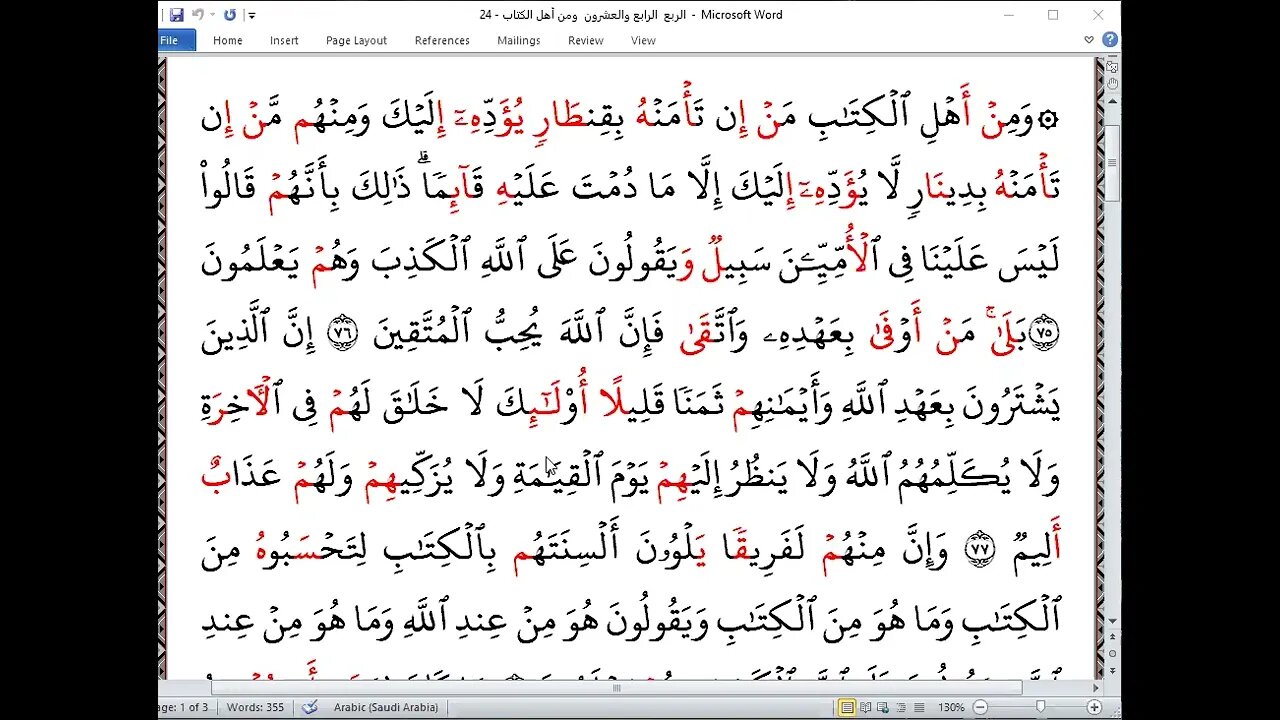 24 - الربع الرابع والعشرون ومن أهل الكتاب - Microsoft Word
File Home Insert Page Layout References Mailings Review View
۞وَمِنْ أَهْلِ ٱلْكِتَٰبِ مَنْ إِن تَأْمَنْهُ بِقِنطَارٍ يُؤَدِّهِۦٓ إِلَيْكَ وَمِنْهُم مَّنْ إِن
تَأْمَنْهُ بِدِينَارٍ لَّا يُؤَدِّهِۦٓ إِلَيْكَ إِلَّا مَا دُمْتَ عَلَيْهِ قَآئِمًا ۗ ذَٰلِكَ بِأَنَّهُمْ قَالُوا۟
لَيْسَ عَلَيْنَا فِى ٱلْأُمِّيِّـۧنَ سَبِيلٌ وَيَقُولُونَ عَلَى ٱللَّهِ ٱلْكَذِبَ وَهُمْ يَعْلَمُونَ
٧٥ بَلَىٰ ۚ مَنْ أَوْفَىٰ بِعَهْدِهِۦ وَٱتَّقَىٰ فَإِنَّ ٱللَّهَ يُحِبُّ ٱلْمُتَّقِينَ ٧٦ إِنَّ ٱلَّذِينَ
يَشْتَرُونَ بِعَهْدِ ٱللَّهِ وَأَيْمَٰنِهِمْ ثَمَنًا قَلِيلًا أُو۟لَٰٓئِكَ لَا خَلَٰقَ لَهُمْ فِى ٱلْـَٔاخِرَةِ
وَلَا يُكَلِّمُهُمُ ٱللَّهُ وَلَا يَنظُرُ إِلَيْهِمْ يَوْمَ ٱلْقِيَٰمَةِ وَلَا يُزَكِّيهِمْ وَلَهُمْ عَذَابٌ
أَلِيمٌ ٧٧ وَإِنَّ مِنْهُمْ لَفَرِيقًا يَلْوُۥنَ أَلْسِنَتَهُم بِٱلْكِتَٰبِ لِتَحْسَبُوهُ مِنَ
ٱلْكِتَٰبِ وَمَا هُوَ مِنَ ٱلْكِتَٰبِ وَيَقُولُونَ هُوَ مِنْ عِندِ ٱللَّهِ وَمَا هُوَ مِنْ عِندِ
age: 1 of 3 Words: 355 Arabic (Saudi Arabia) 130%